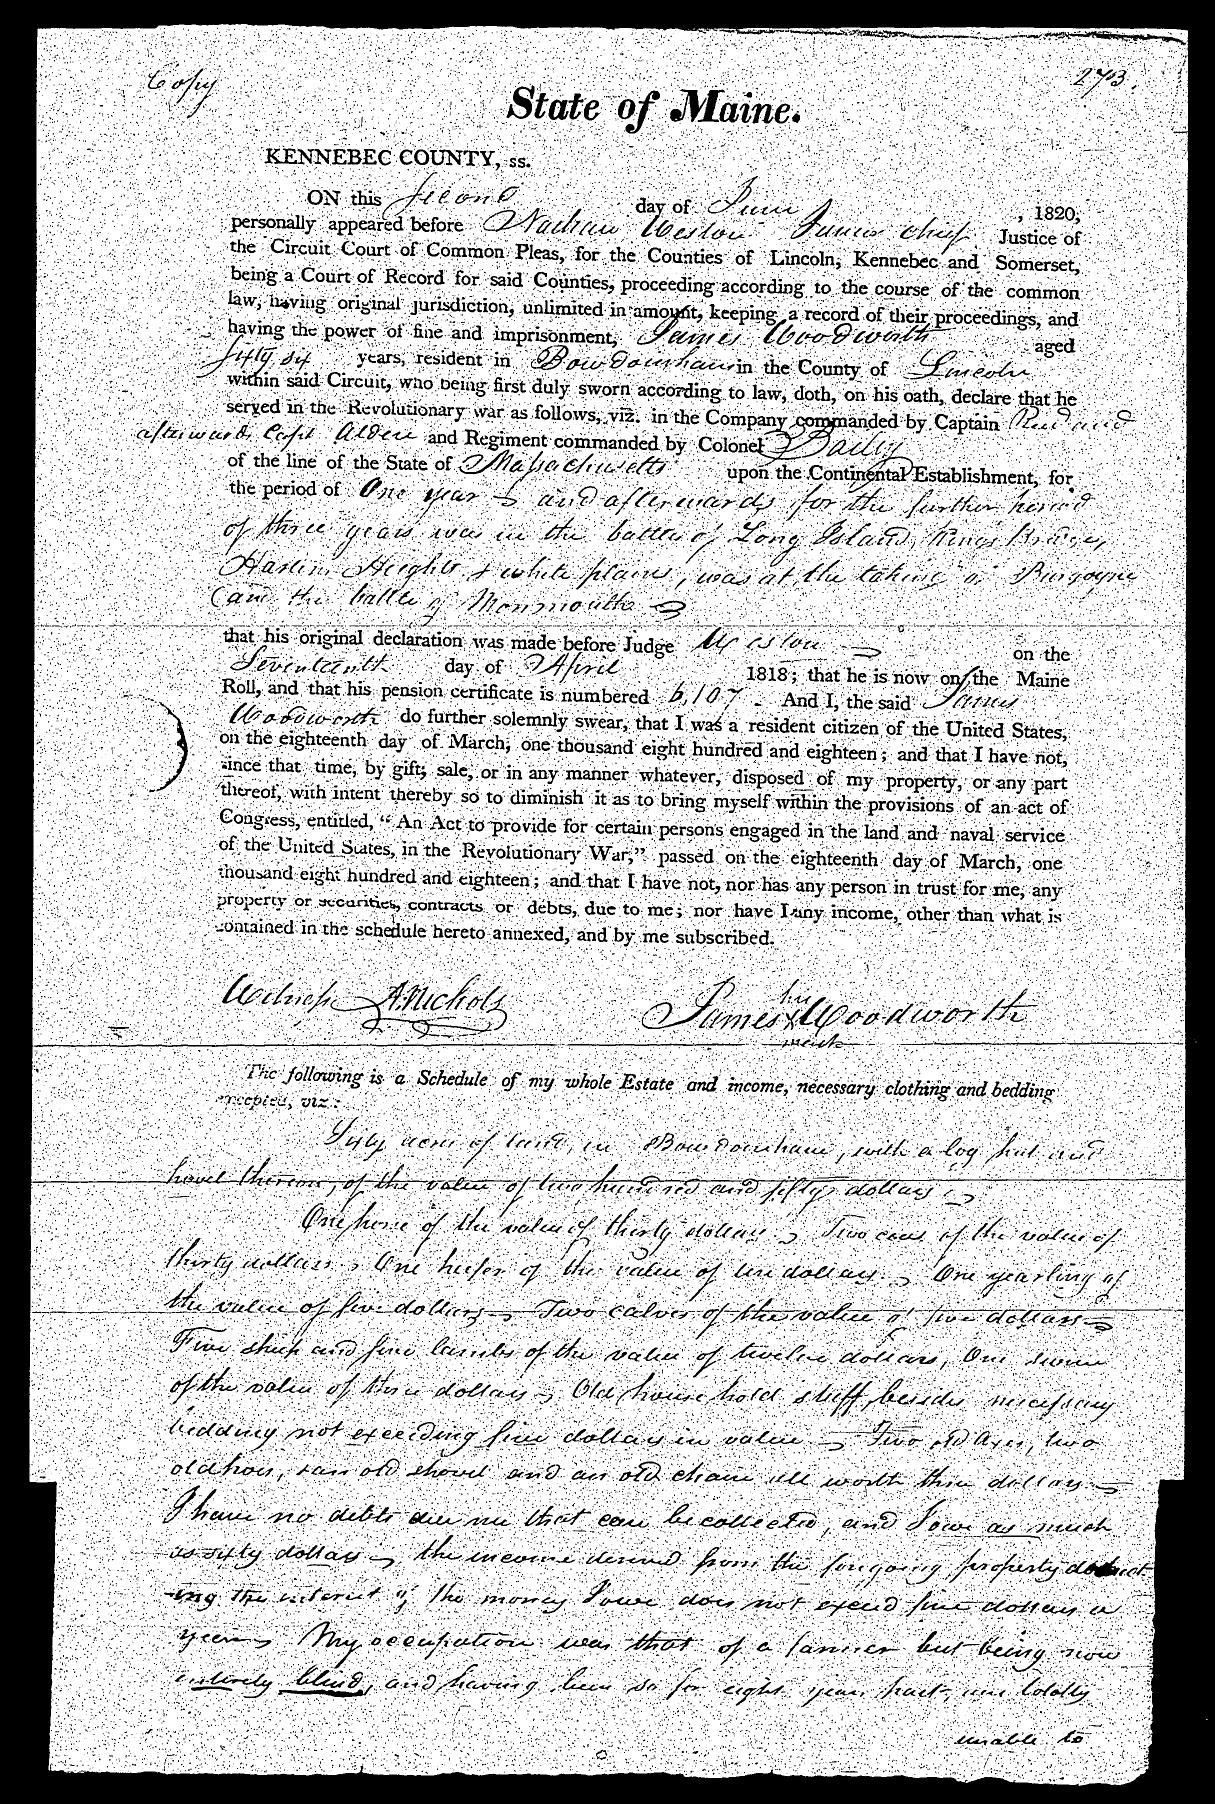 Copy
273.
State of Maine.
KENNEBEC COUNTY, ss.
ON this second day of June , 1820,
personally appeared before Nathan Weston Junior chief Justice of
the Circuit Court of Common Pleas, for the Counties of Lincoln, Kennebec and Somerset,
being a Court of Record for said Counties, proceeding according to the course of the common
law, having original jurisdiction, unlimited in amount, keeping a record of their proceedings, and
having the power of fine and imprisonment, James Woodworth aged
sixty six years, resident in Bowdoinham in the County of Lincoln
within said Circuit, who being first duly sworn according to law, doth, on his oath, declare that he
served in the Revolutionary war as follows, viz. in the Company commanded by Captain and
afterwards Capt Alden and Regiment commanded by Colonel Bailey
of the line of the State of Massachusetts upon the Continental Establishment, for
the period of One year and afterwards for the further period
of three years was in the battles of Long Island, Kings Bridge,
Harlem Heights & white plains, was at the taking of Burgoyne
and the battle of Monmouth
that his original declaration was made before Judge Weston on the
Seventeenth day of April 1818; that he is now on the Maine
Roll, and that his pension certificate is numbered 6,107 . And I, the said James
Woodworth do further solemnly swear, that I was a resident citizen of the United States,
on the eighteenth day of March, one thousand eight hundred and eighteen; and that I have not,
since that time, by gift, sale, or in any manner whatever, disposed of my property, or any part
thereof, with intent thereby so to diminish it as to bring myself within the provisions of an act of
Congress, entitled, "An Act to provide for certain persons engaged in the land and naval service
of the United States, in the Revolutionary War," passed on the eighteenth day of March, one
thousand eight hundred and eighteen; and that I have not, nor has any person in trust for me, any
property or securities, contracts or debts, due to me; nor have I any income, other than what is
contained in the schedule hereto annexed, and by me subscribed.
Witness A. Nichols
his
James X Woodworth
mark
The following is a Schedule of my whole Estate and income, necessary clothing and bedding
excepted, viz:
Sixty acres of land, in Bowdoinham, with a log hut and
hovel thereon, of the value of two hundred and fifty dollars
One horse of the value of thirty dollars Two cows of the value of
thirty dollars One heifer of the value of ten dollars One yearling of
the value of five dollars Two calves of the value of five dollars
Five sheep and five lambs of the value of twelve dollars, One swine
of the value of three dollars Old house hold stuff, besides necessary
bedding not exceeding five dollars in value Two old axes, two
old hoes, an old shovel and an old chain all worth three dollars
I have no debts due me that can be collected, and I owe as much
as sixty dollars the income derived from the foregoing property deduct
ing the interest of the money I owe does not exceed five dollars a
year My occupation was that of a farmer but being now
entirely blind, and having been so for eight years past, am totally
unable to